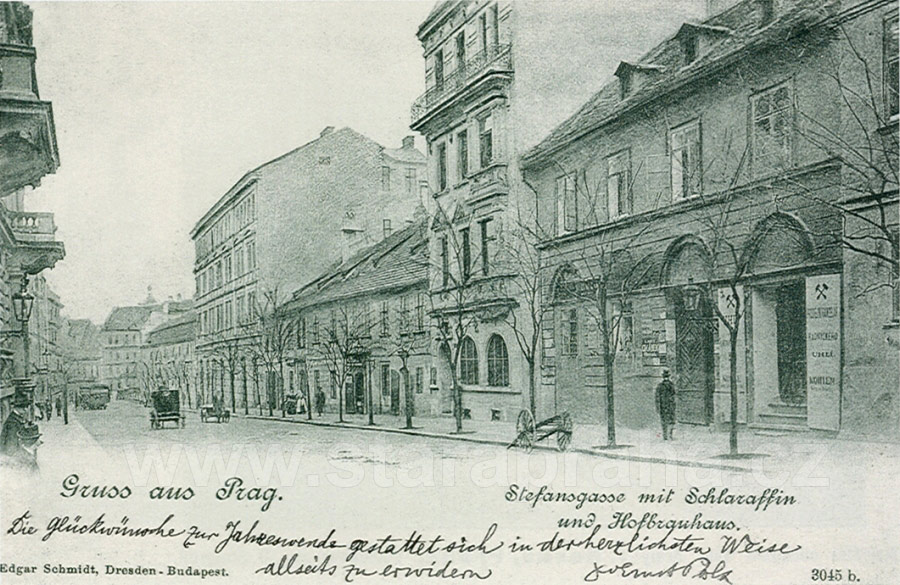 UHLÍ
KOHLEN
www.starapraha.cz
Gruss aus Prag.
Stefansgasse mit Schlaraffin
und Hofbräuhaus.
Die Glückwünsche zur Jahreswende gestattet sich in der herzlichsten Weise
allseits zu erwidern
Edgar Schmidt, Dresden-Budapest.
3045 b.